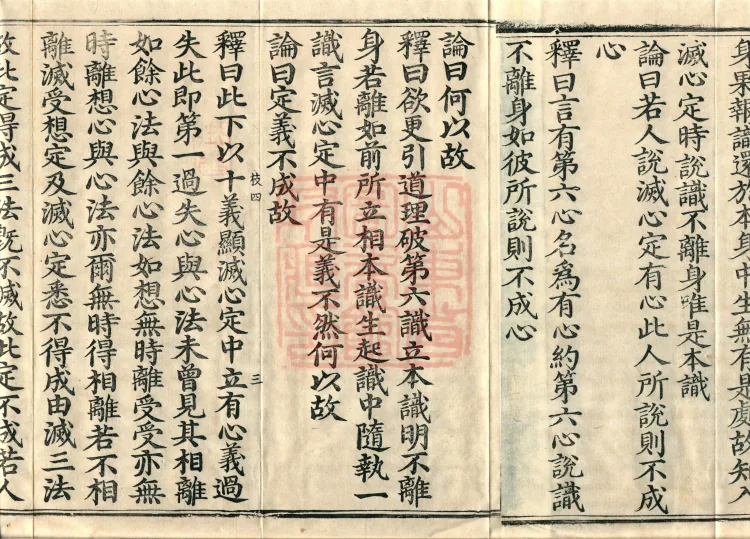 身果報識還於本身中生無有是處故知入
滅心定時說識不離身唯是本識
論曰若人說滅心定有心此人所說則不成
心
釋曰言有第六心名爲有心約第六心說識
不離身如彼所說則不成心
論曰何以故
釋曰欲更引道理破第六識立本識明不離
身若離如前所立相本識生起識中隨執一
識言滅心定中有是義不然何以故
論曰定義不成故
枝四
三
釋曰此下以十義顯滅心定中立有心義過
失此即第一過失心與心法未曾見其相離
如餘心法與餘心法如想無時離受受亦無
時離想心與心法亦爾無時得相離若不相
離滅受想定及滅心定悉不得成由滅三法
故此定得成三法旣不滅故此定不成若人